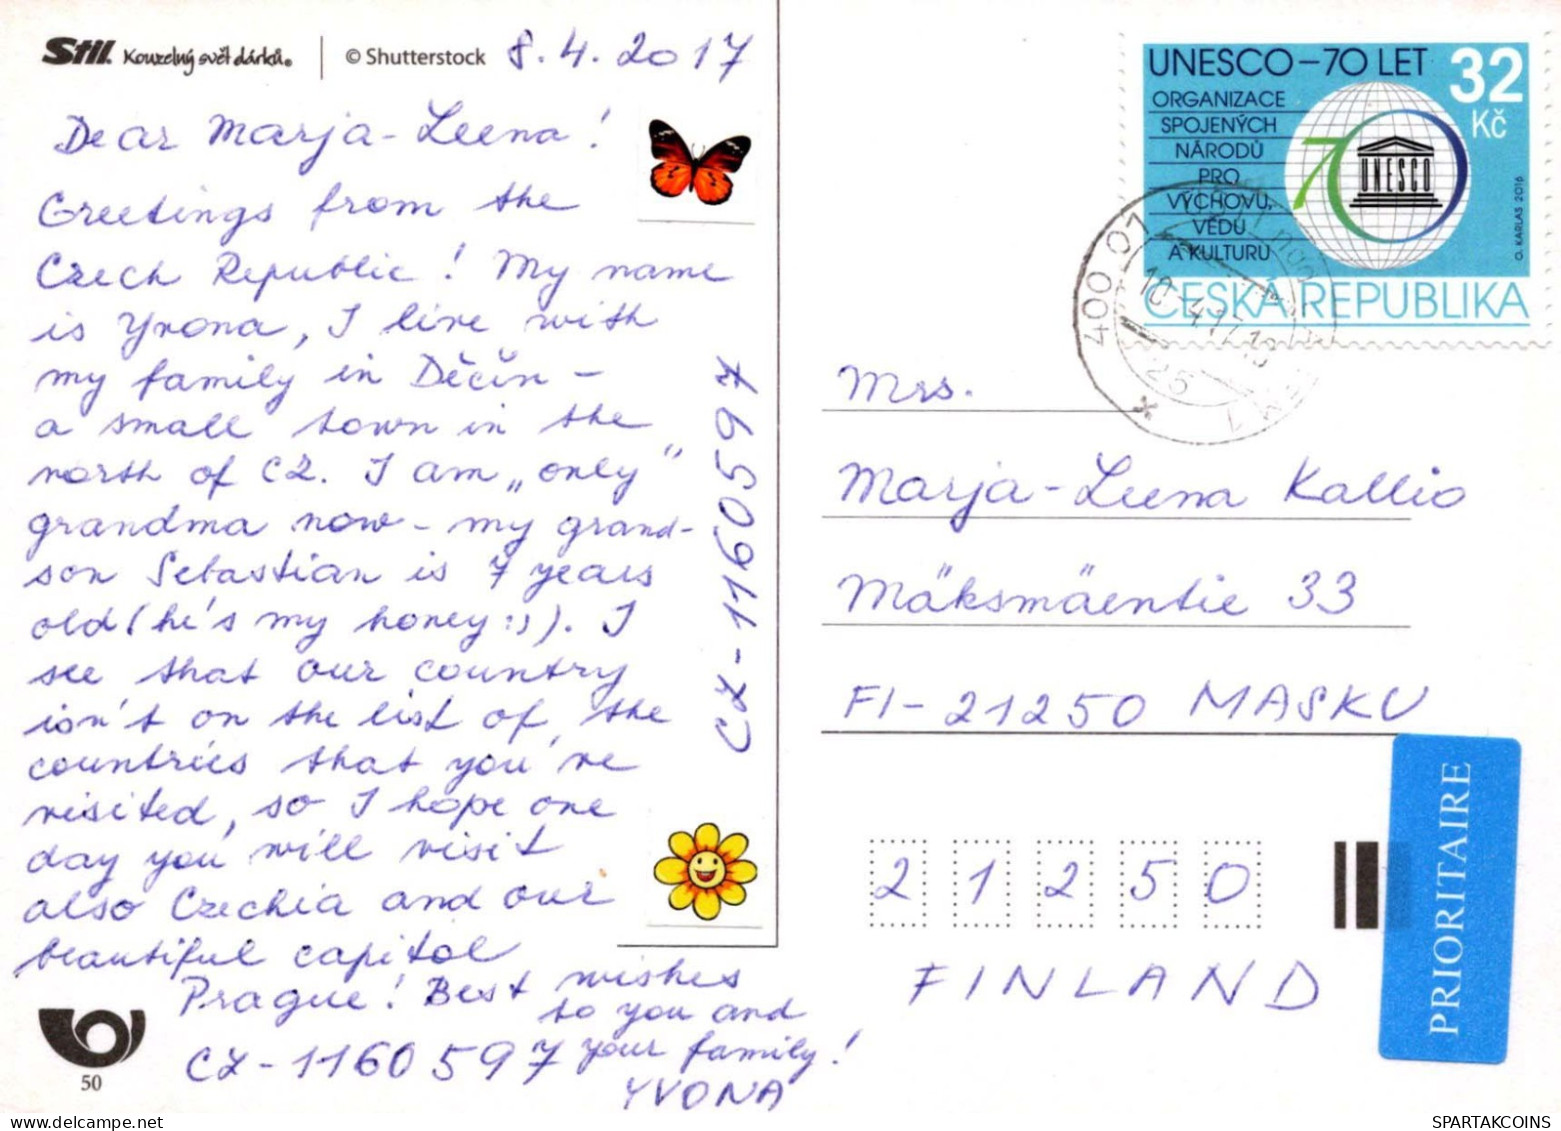 Stil. Kouzelný svět dárků.
© Shutterstock
8.4.2017
Dear Marja-Leena!
Greetings from the
Czech Republic! My name
is Yvona, I live with
my family in Děčín –
a small town in the
north of CZ. I am „only"
grandma now – my grand-
son Sebastian is 7 years
old (he's my honey :)). I
see that our country
isn't on the list of the
countries that you've
visited, so I hope one
day you will visit
also Czechia and our
beautiful capitol
Prague! Best wishes
to you and
your family!
CZ-1160597
YVONA
CZ-1160597
50
UNESCO – 70 LET
32
Kč
ORGANIZACE
SPOJENÝCH
NÁRODŮ
PRO
VÝCHOVU,
VĚDU
A KULTURU
70
UNESCO
O. KARLAS 2016
ČESKÁ REPUBLIKA
400 01
10.4.17.18
25
Mrs.
Marja-Leena Kallio
Mäksmäentie 33
FI-21250 MASKU
21250
FINLAND
PRIORITAIRE
SPARTAKCOINS